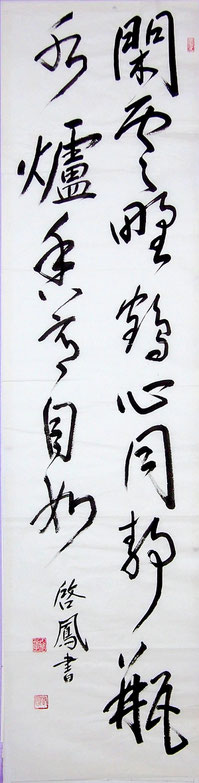 閑雲野鶴心同靜瓶
水爐香意自如
啓鳳書